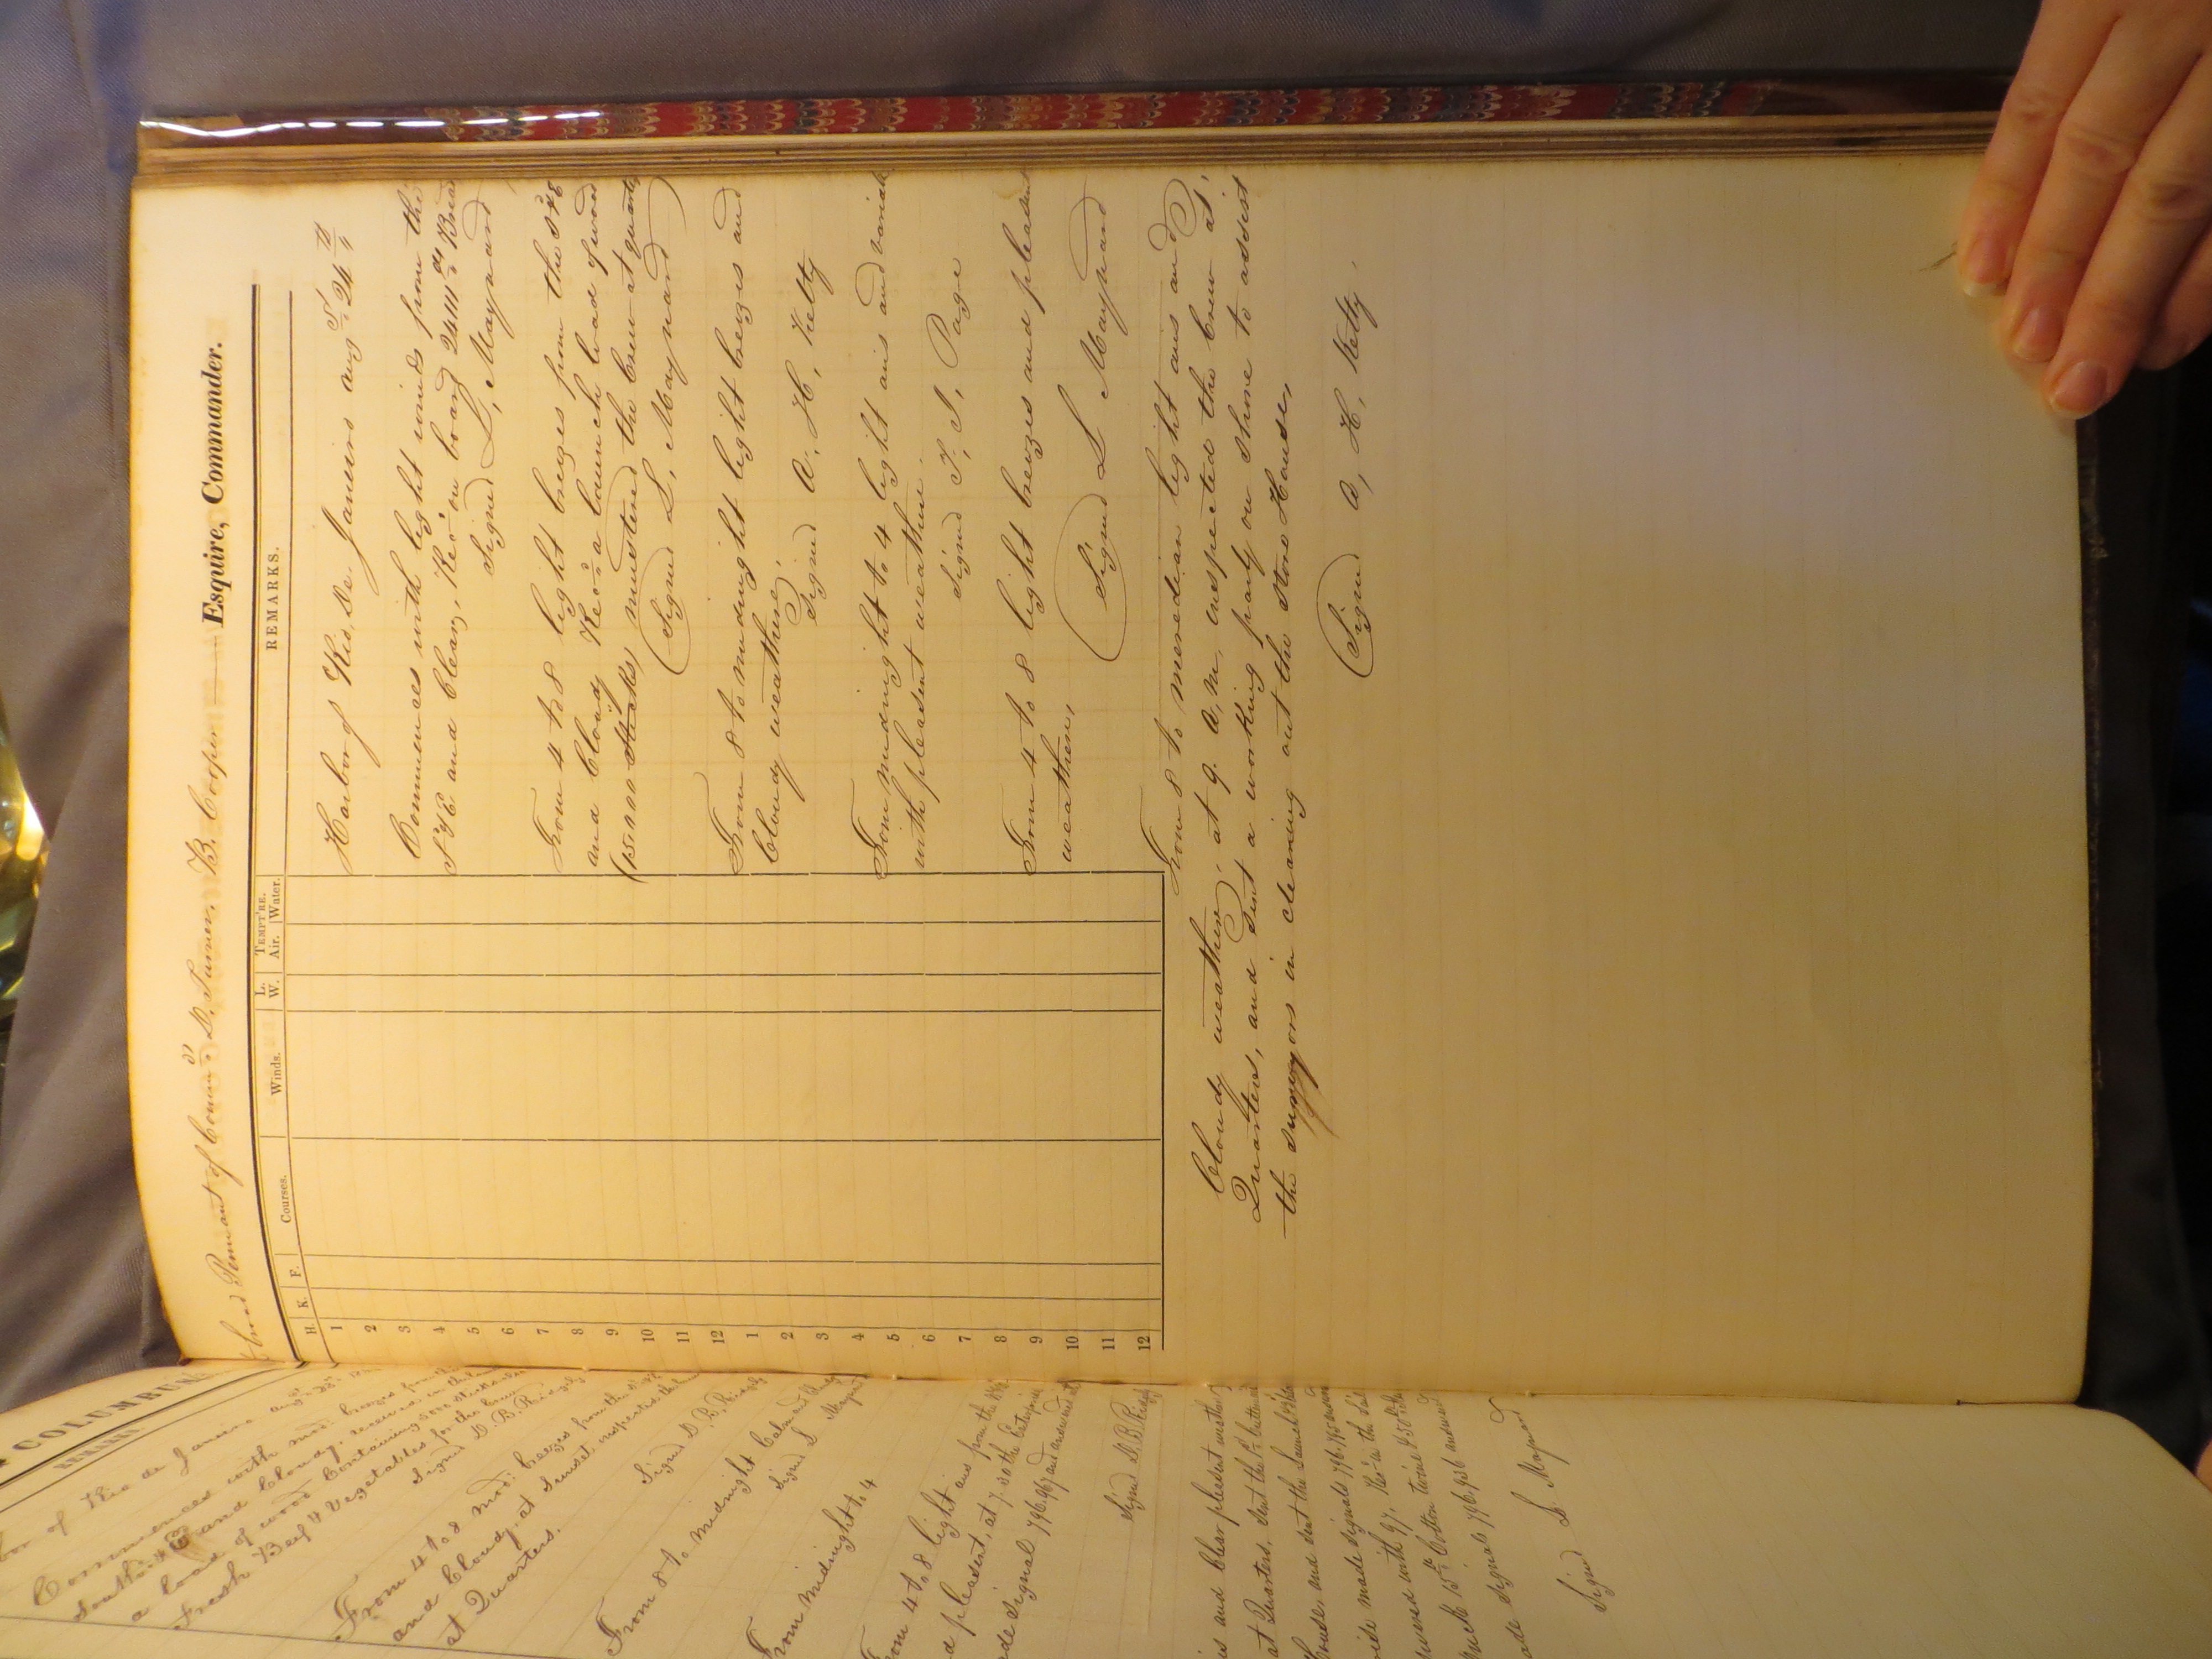 COLUMBUS.
REMARKS.
of Rio de Janeiro aug
Commences with mod: breezes from the
and Cloudy, received in the
a load of wood Containing 5000 sticks
Fresh Beef & Vegetables for the
Signed D. B. Ridgely
From 4 to 8 mod: breezes from the
and Cloudy, at sunset inspected the
at Quarters.
Signed D. B. Ridgely
From 8 to Midnight Calm and
Signed L Maynard
From Midnight to 4
From 4 to 8 light airs from the
pleasent, at 7.30 the Enterprise
made signal 796.967 and answered
Signed D. B. Ridgely
and Clear plesent weather,
at Quarters, sent the
house, and sent the Launch
made signals 796.
answered with 97,
Cotton twine
made signals 796.936 answered
Signed L. Maynard
broad Pennant of Comm: D. Turner, B. Cooper Esquire, Commander.
H. K. F. Courses. Winds. L. W. TEMPT'RE. Air. Water. REMARKS.
1
2
3
4
5
6
7
8
9
10
11
12
1
2
3
4
5
6
7
8
9
10
11
12
Harbor of Rio, De Janeiro aug St 24th
Commences with light winds from the
S & E and Clear, Rec'd on board 2411 lbs Bread
Signed L, Maynard
From 4 to 8 light breezes from the S & E
and Cloudy Rec'd a launch load of wood
(15.000 Sticks) mustered the Crew at quarters
(Signed L, Maynard)
From 8 to midnight light breezes and
Cloudy weather,
Signed A, H, Kelty
From Midnight to 4 light airs and variable
with plesent weather.
Signed T, J, Page
From 4 to 8 light breezes and pleasent
weather,
(Signed L Maynard)
From 8 to meredian light airs and
Cloudy weather, at 9. a, m, inspected the Crew at
Quarters, and Sent a working party on Shore to assist
the survyors in cleaning out the Store House,
(Signed A, H, Kelty,